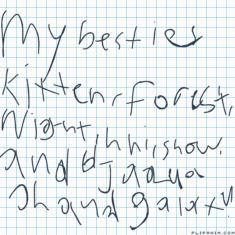 My besties
Kitten, forest,
Night, hhi, snow,
and Jaaya
Oh and galaxy!!
FLIPANIM.COM